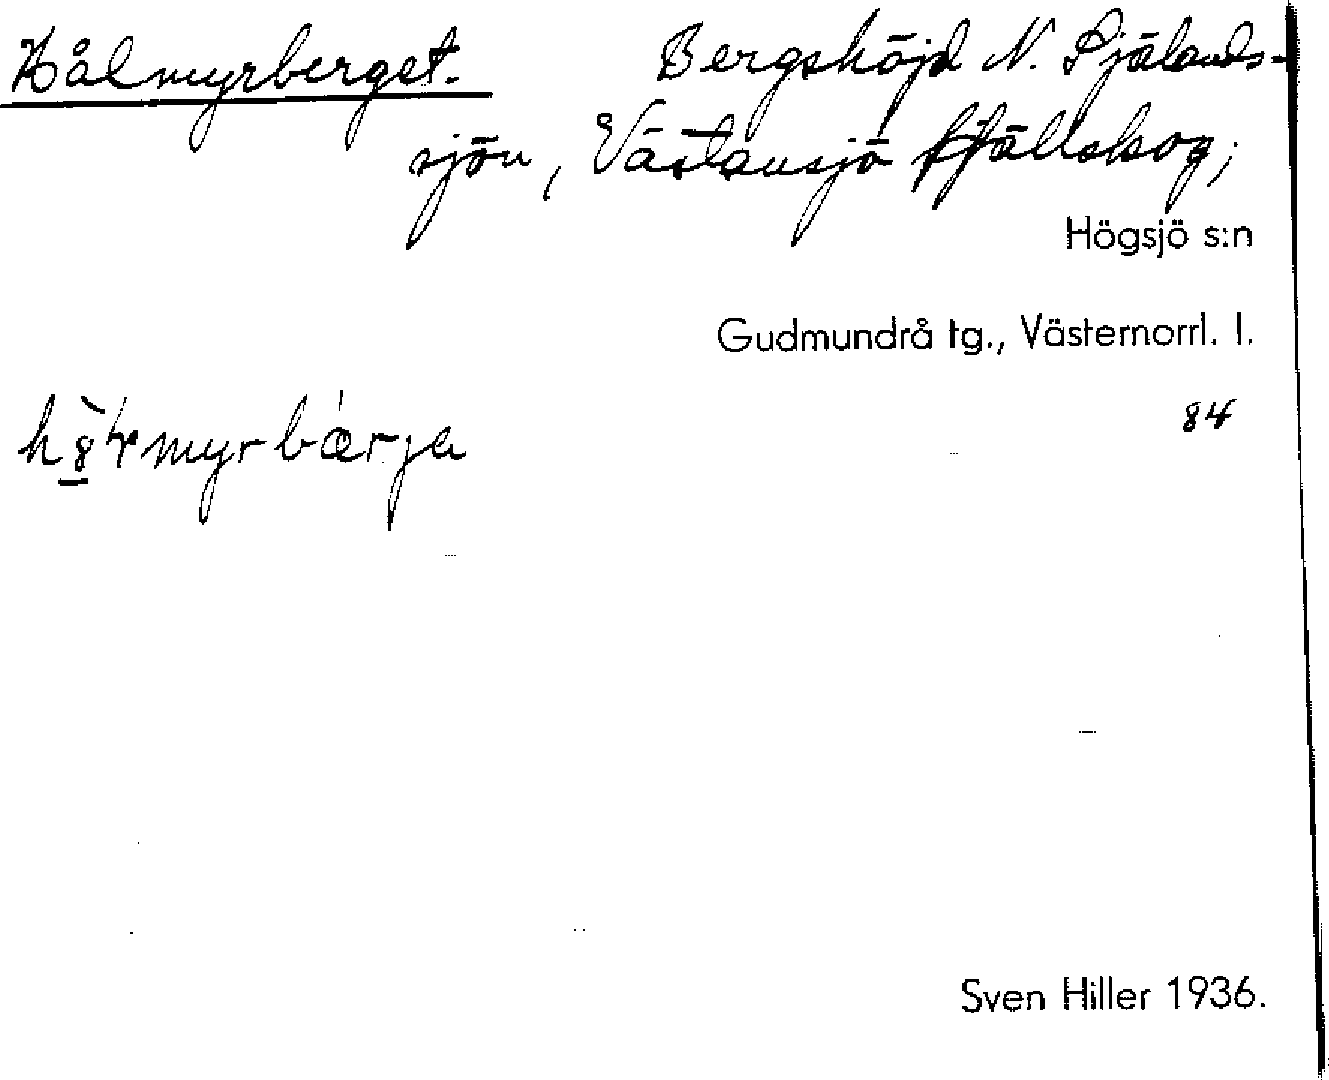 Hålmyrberget. Bergshöjd N. Själands-
sjön, Västansjö fjällskog;
Högsjö s:n
Gudmundrå tg., Västernorrl. l.
84
Sven Hiller 1936.